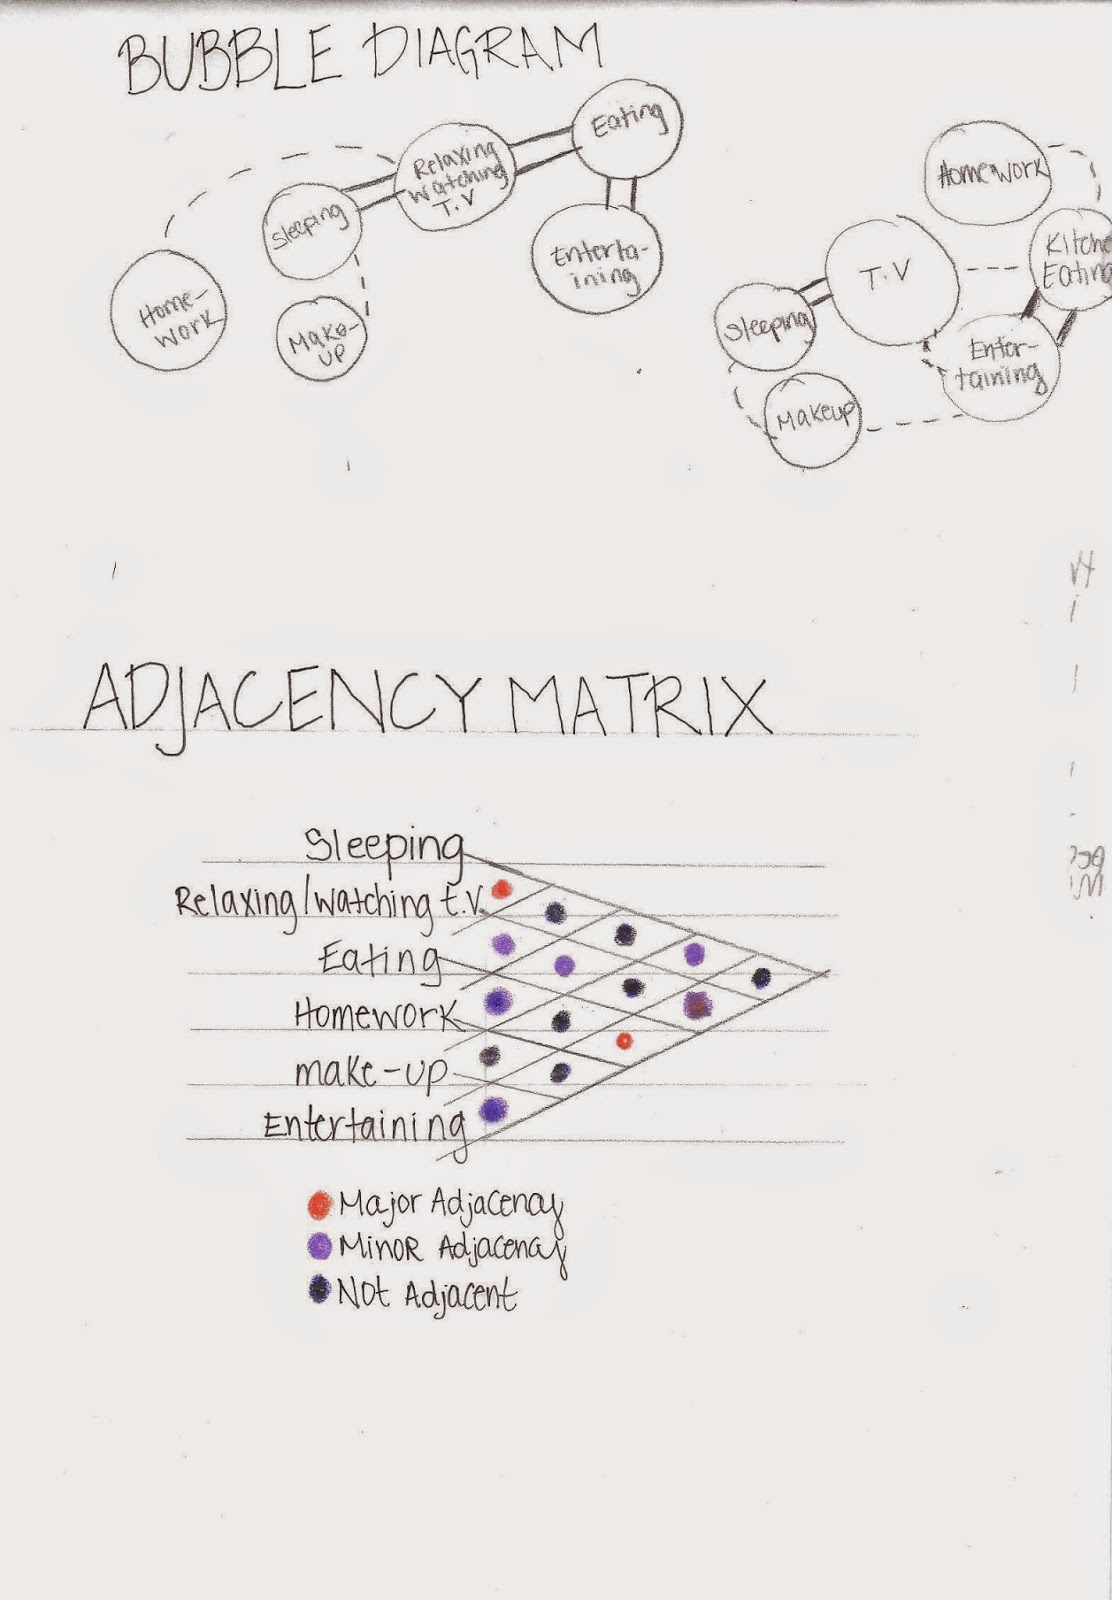 BUBBLE DIAGRAM
Eating
Relaxing
Watching
T.V
Sleeping
Entertai-
ining
Home-
work
Make-
up
Homework
Kitche
Eating
T.V
Sleeping
Enter-
taining
Makeup
ADJACENCY MATRIX
Sleeping
Relaxing/Watching t.v.
Eating
Homework
make-up
Entertaining
Major Adjacency
Minor Adjacency
Not Adjacent